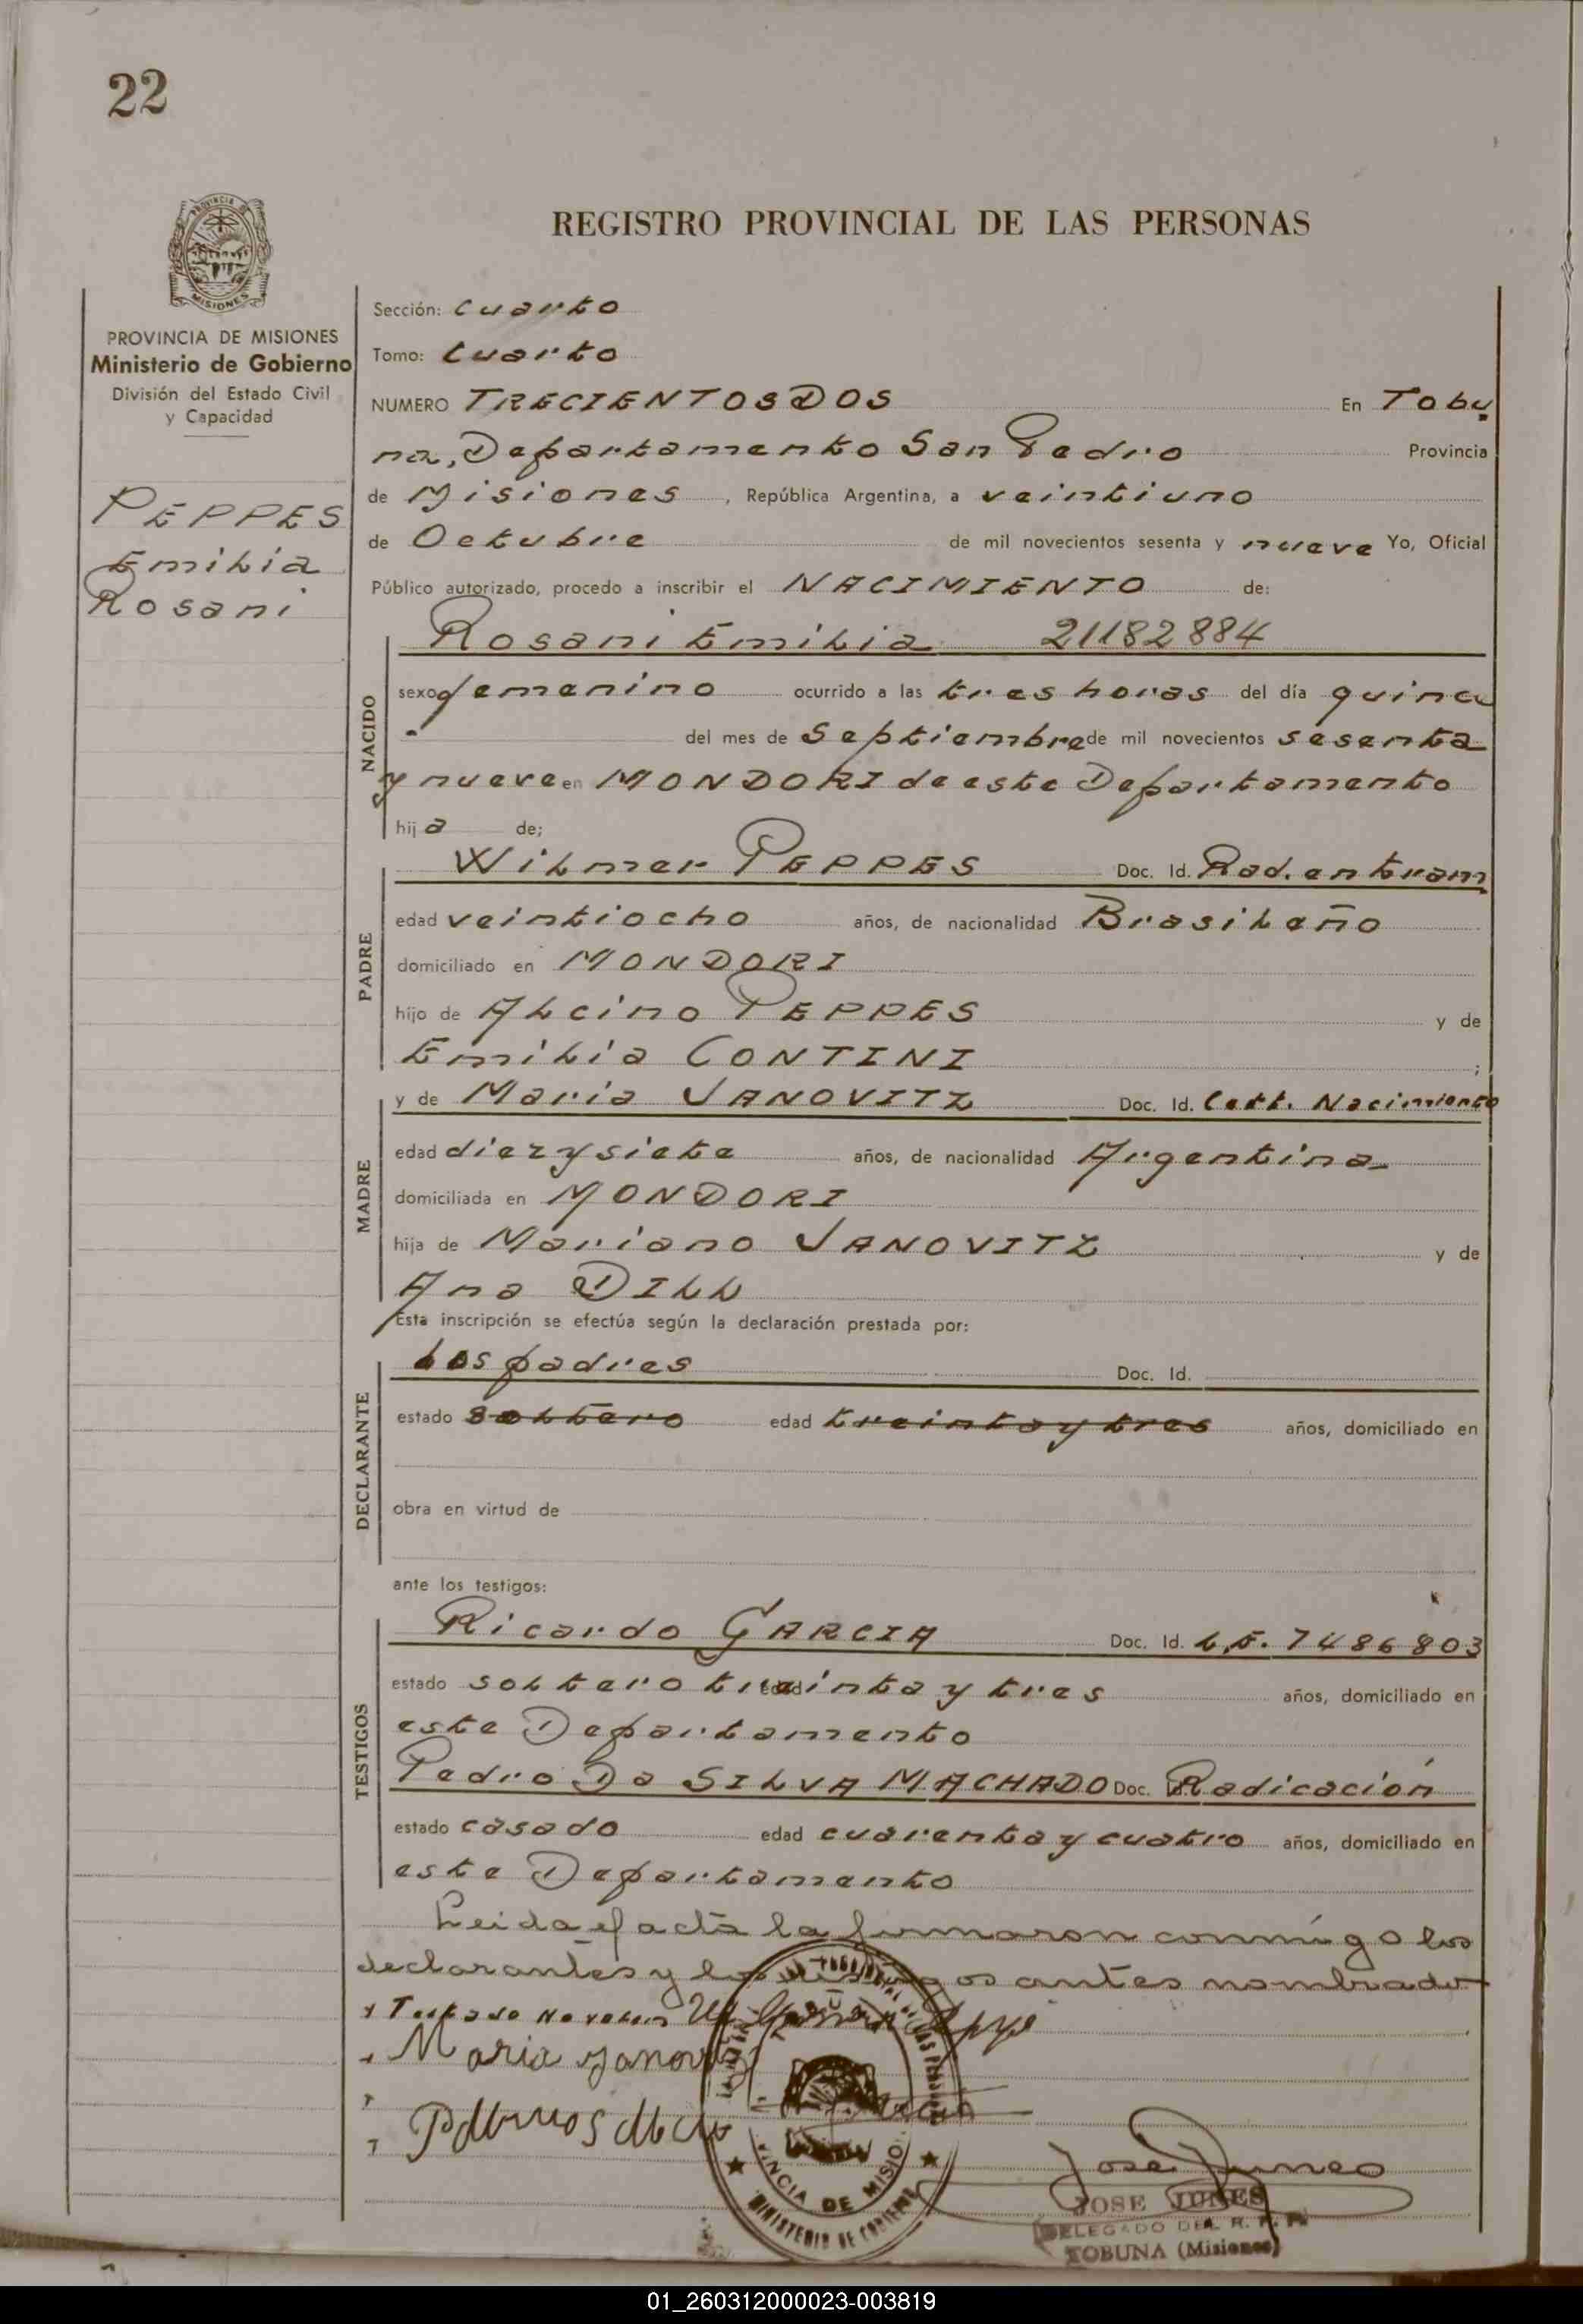 22
PROVINCIA DE
MISIONES
REGISTRO PROVINCIAL DE LAS PERSONAS
PROVINCIA DE MISIONES
Ministerio de Gobierno
División del Estado Civil
y Capacidad
PEPPES
Emilia
Rosani
Sección: cuarto
Tomo: cuarto
NUMERO TRECIENTOS DOS En Tobu
na, Departamento San Pedro Provincia
de Misiones, República Argentina, a veintiuno
de Octubre de mil novecientos sesenta y nueve Yo, Oficial
Público autorizado, procedo a inscribir el NACIMIENTO de:
Rosani Emilia 21182884
NACIDO
sexo femenino ocurrido a las tres horas del día quince
del mes de Septiembre de mil novecientos sesenta
y nueve en MONDORI de este Departamento
hija de;
Wilmer PEPPES Doc. Id. Rad. en tram
PADRE
edad veintiocho años, de nacionalidad Brasileño
domiciliado en MONDORI
hijo de Alcino PEPPES y de
Emilia CONTINI ;
y de Maria JANOVITZ Doc. Id. Cert. Nacimiento
MADRE
edad diez y siete años, de nacionalidad Argentina
domiciliada en MONDORI
hija de Mariano JANOVITZ y de
Ana DILL
Esta inscripción se efectúa según la declaración prestada por:
los padres Doc. Id.
DECLARANTE
estado soltero edad treinta y tres años, domiciliado en
obra en virtud de
ante los testigos:
Ricardo GARCIA Doc. Id. L.E. 7486803
TESTIGOS
estado soltero edad treinta y tres años, domiciliado en
este Departamento
Pedro Da SILVA MACHADO Doc. Id. Radicación
estado casado edad cuarenta y cuatro años, domiciliado en
este Departamento
Leida el acta la firmaron conmigo los
declarantes y los testigos antes nombrados
Testado No vale
Maria Janovitz
PROVINCIA DE MISIONES
MINISTERIO DE GOBIERNO
Jose Junes
JOSE JUNES
DELEGADO DEL R. P. P.
TOBUNA (Misiones)
01_260312000023-003819